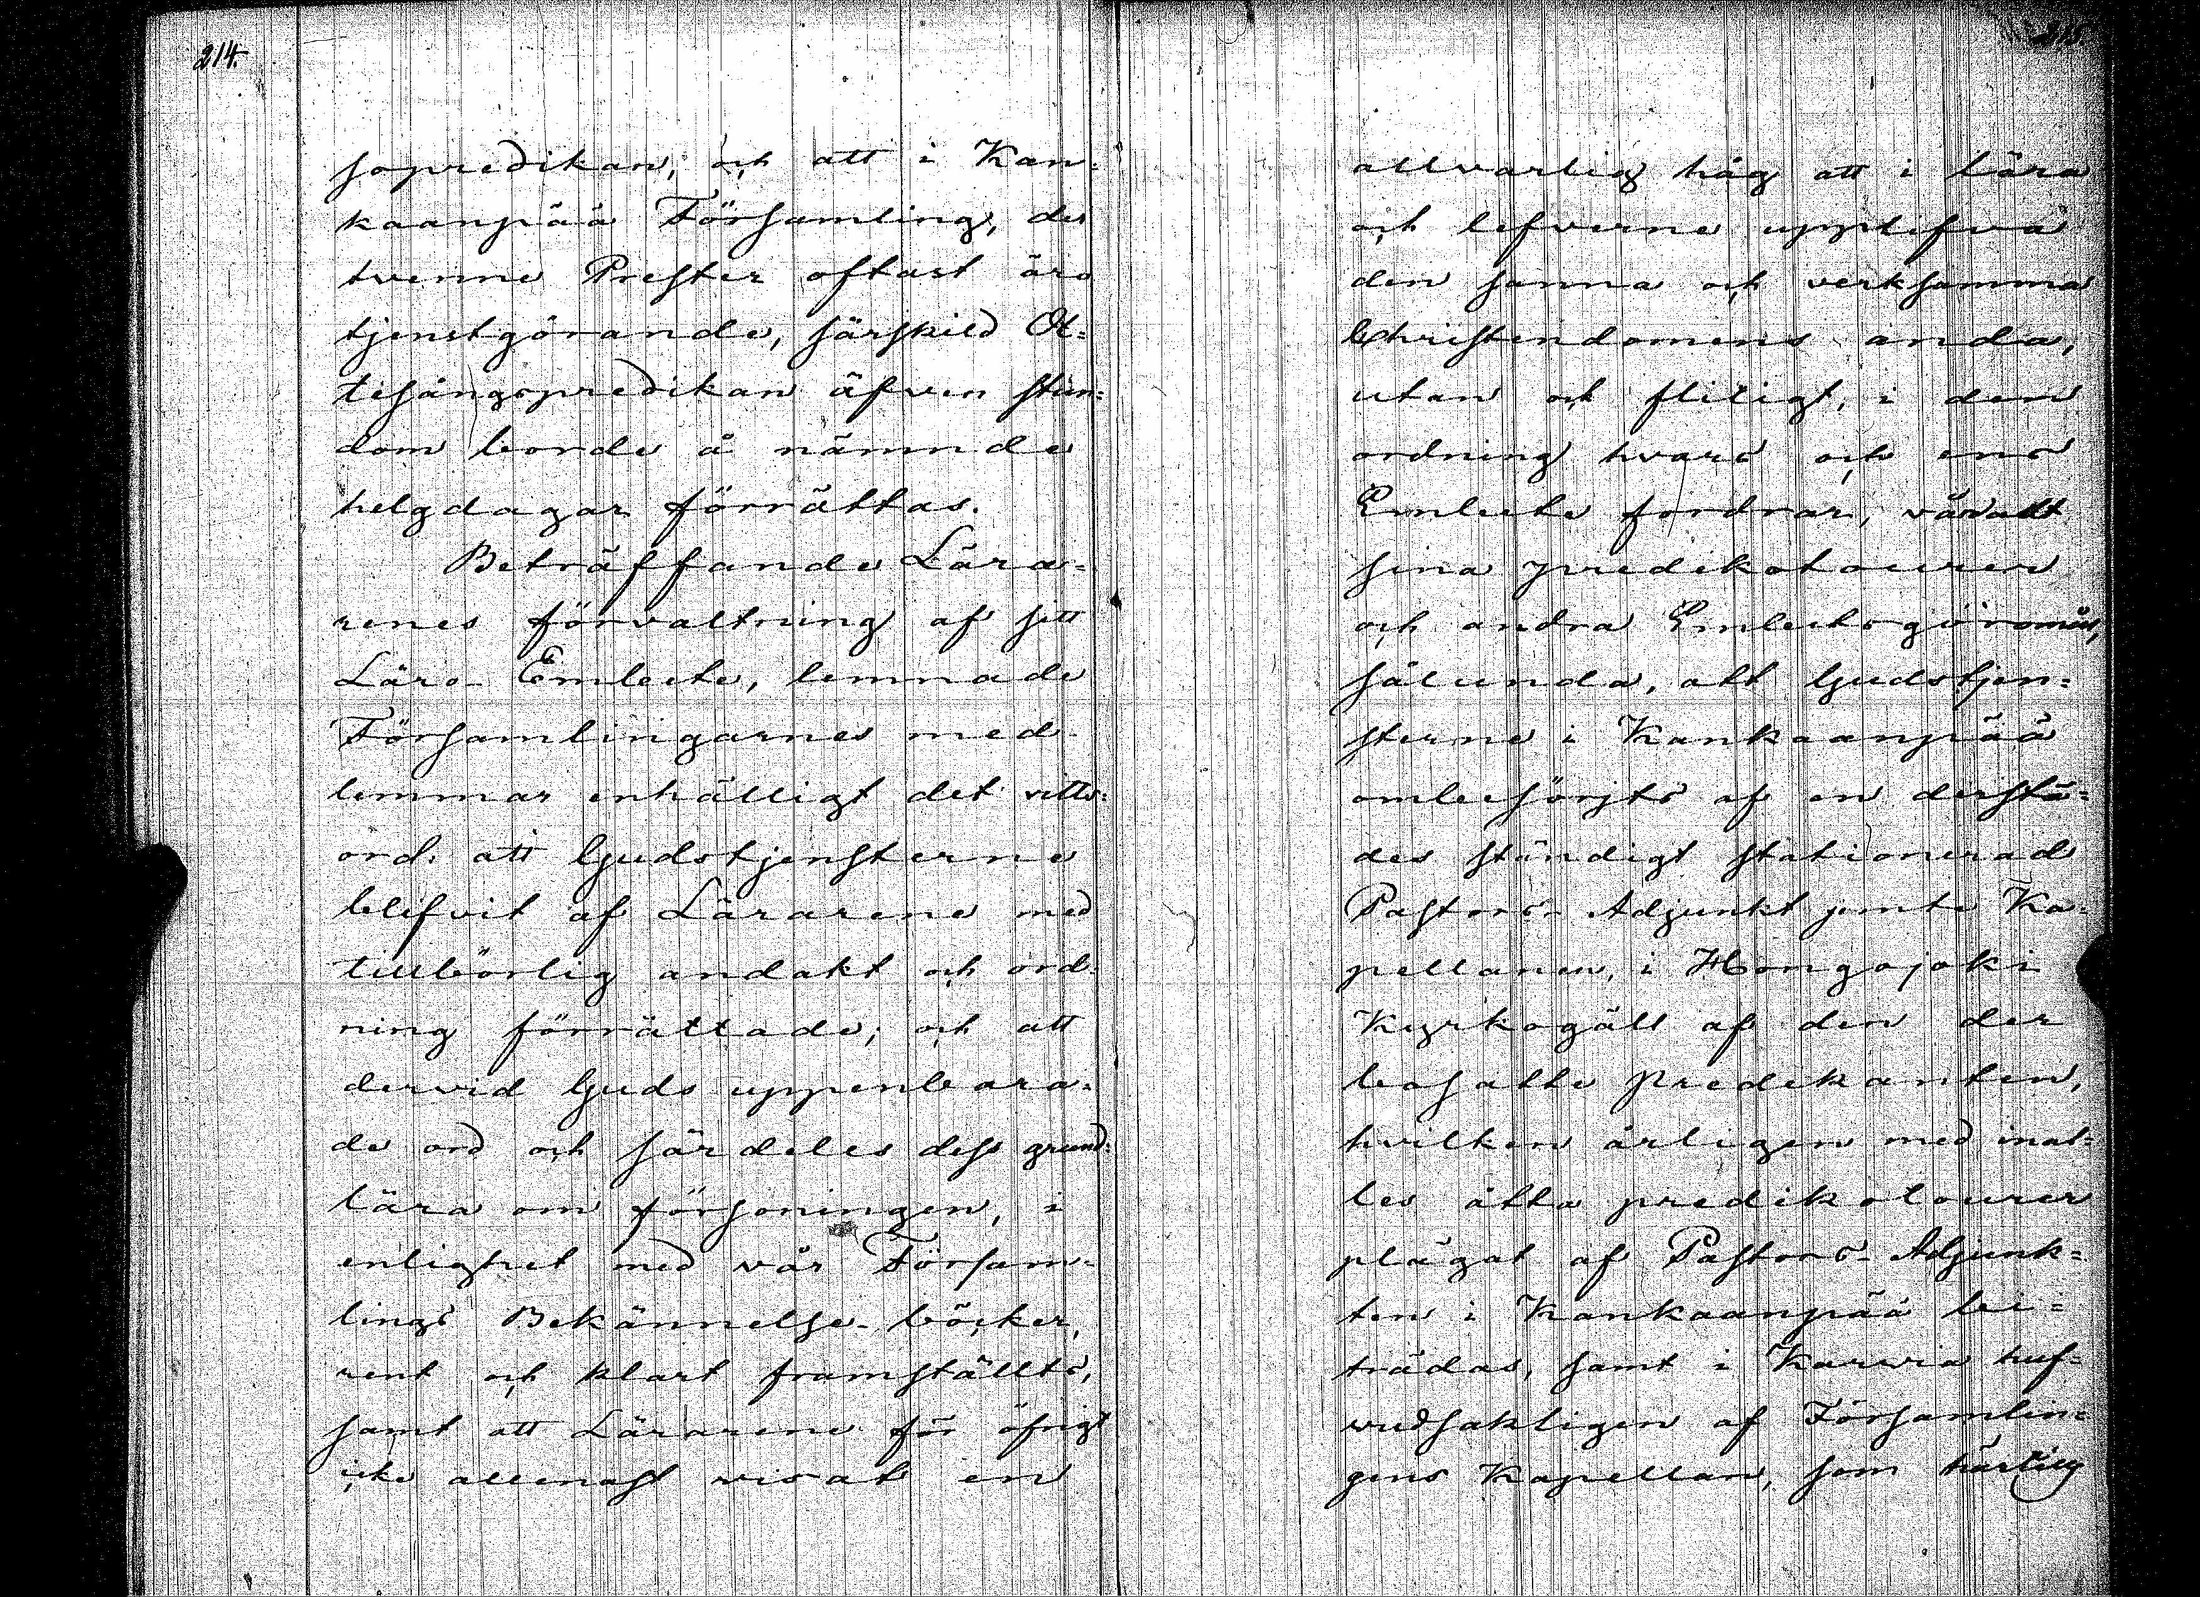 214.
sopredikan, och att i Kan=
kaanpää Församling, der
tvenne Prester oftast äro
tjenstgörande, särskild Ot=
tesångspredikan äfven stun=
dom borde å nämnde
helgdagar förrättas.
Beträffande Lära=
renes förvaltning af sitt
Läro-Embete, lemnade
Församlingarnes med-
lemmar enhälligt det vitts=
ord, att Gudstjensterne
blifvit af Lärarene med
tillbörlig andakt och ord-
ning förrättade; och att
dervid Guds uppenbara-
de ord och särdeles dess grund=
lära om försoningen, i
enlighet med vår Försam-
lings Bekännelse-böcker,
rent och klart framställts,
samt att Lärarene för öfrigt
icke allenast visat en
215.
allvarlig håg att i lära
och lefverne upplifva
den sanna och verksamma
Christendomens anda,
utan och flitigt, i den
ordning hvars och ens
Embete fordrar, vårdatt
sina predikotourer
och andra Embetsgöromål,
sålunda, att Gudstjen=
sterne i Kankaanpää
ombesörjts af en derstä=
des ständigt stationerad
Pastors-Adjunkt jemte Ka=
pellanen, i Hongojoki
Kyrkogäll af den der
bosatte predikanten,
hvilken årligen med inal=
les åtta predikotourer
plägat af Pastors-Adjunk=
ten i Kankaanpää bi=
trädas, samt i Karvia huf=
vudsakligen af Församlin=
gens Kapellan, som härtill